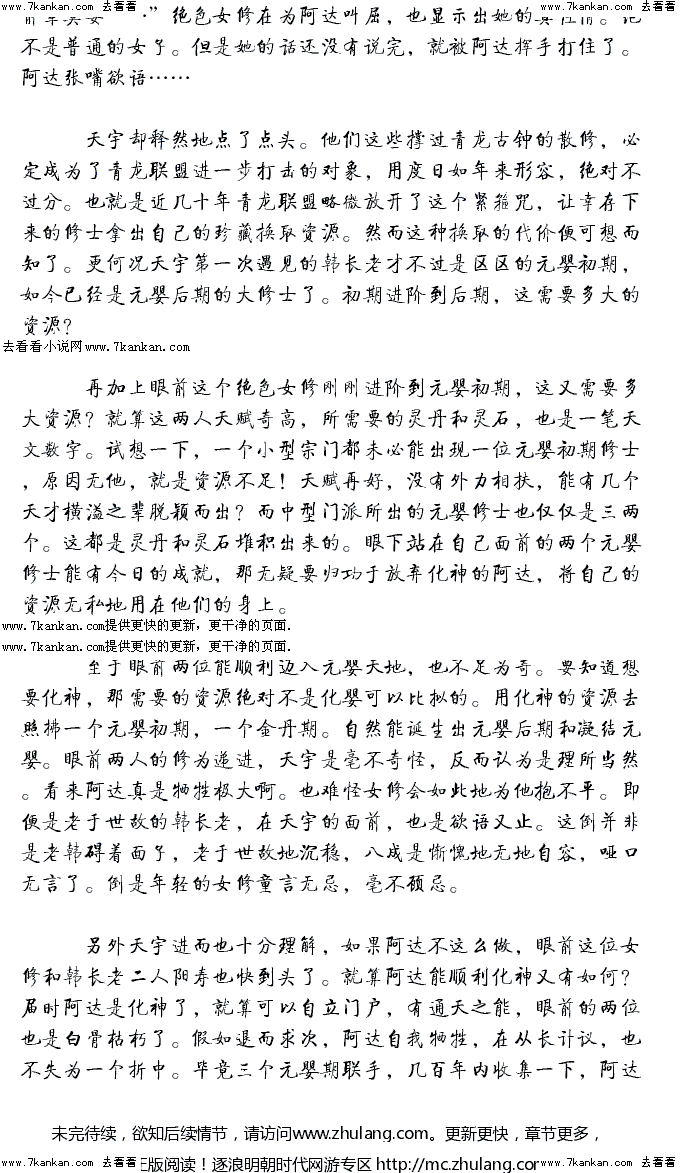 www.7kankan.com 去看看 www.7kankan.com 去看看 www.7kankan.com 去看看 www.7kankan.com 去看看
”绝色女修在为阿达叫屈，也显示出她的真性情。
不是普通的女子。但是她的话还没有说完，就被阿达挥手打住了。
阿达张嘴欲语……
天宇却释然地点了点头。他们这些撑过青龙古钟的散修，必
定成为了青龙联盟进一步打击的对象，用度日如年来形容，绝对不
过分。也就是近几十年青龙联盟略微放开了这个紧箍咒，让幸存下
来的修士拿出自己的珍藏换取资源。然而这种换取的代价便可想而
知了。更何况天宇第一次遇见的韩长老才不过是区区的元婴初期，
如今已经是元婴后期的大修士了。初期进阶到后期，这需要多大的
资源？
去看看小说网www.7kankan.com
再加上眼前这个绝色女修刚刚进阶到元婴初期，这又需要多
大资源？就算这两人天赋奇高，所需要的灵丹和灵石，也是一笔天
文数字。试想一下，一个小型宗门都未必能出现一位元婴初期修士
，原因无他，就是资源不足！天赋再好，没有外力相扶，能有几个
天才横溢之辈脱颖而出？而中型门派所出的元婴修士也仅仅是三两
个。这都是灵丹和灵石堆积出来的。眼下站在自己面前的两个元婴
修士能有今日的成就，那无疑要归功于放弃化神的阿达，将自己的
资源无私地用在他们的身上。
www.7kankan.com提供更快的更新，更干净的页面.
www.7kankan.com提供更快的更新，更干净的页面.
至于眼前两位能顺利迈入元婴天地，也不足为奇。要知道想
要化神，那需要的资源绝对不是化婴可以比拟的。用化神的资源去
照拂一个元婴初期，一个金丹期。自然能诞生出元婴后期和凝结元
婴。眼前两人的修为递进，天宇是毫不奇怪，反而认为是理所当然
。看来阿达真是牺牲极大啊。也难怪女修会如此地为他抱不平。即
便是老于世故的韩长老，在天宇的面前，也是欲语又止。这倒并非
是老韩碍着面子，老于世故地沉稳，八成是惭愧地无地自容，哑口
无言了。倒是年轻的女修童言无忌，毫不顾忌。
另外天宇进而也十分理解，如果阿达不这么做，眼前这位女
修和韩长老二人阳寿也快到头了。就算阿达能顺利化神又有如何？
届时阿达是化神了，就算可以自立门户，有通天之能，眼前的两位
也是白骨枯朽了。假如退而求次，阿达自我牺牲，在从长计议，也
不失为一个折中。毕竟三个元婴期联手，几百年内收集一下，阿达
未完待续，欲知后续情节，请访问www.zhulang.com。更新更快，章节更多，
www.7kankan.com 去看看 正版阅读！逐浪明朝时代网游专区 http://mc.zhulang.com www.7kankan.com 去看看